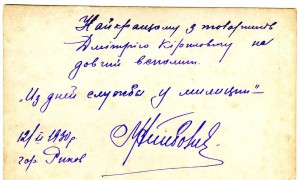 Найкращому з товаришів
Дмитрію на
довгий спомин.
"Из дней службы у милиции"
12/II 1930 р
гор. Риков